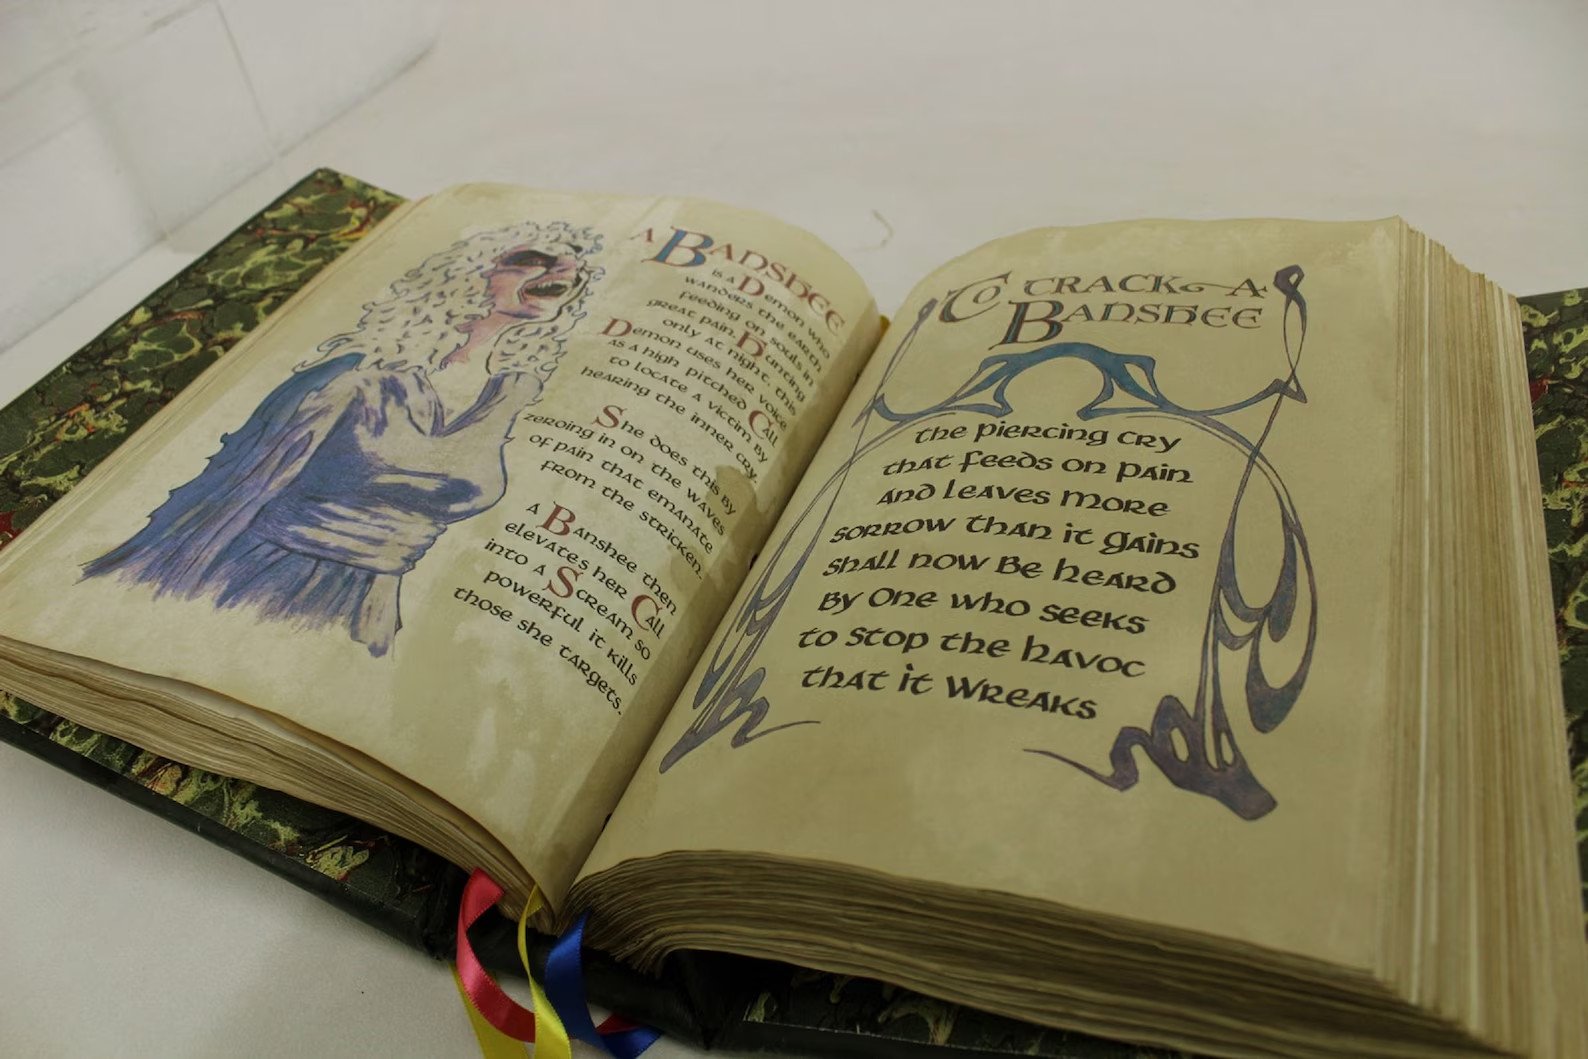 A BANSHEE
is a Demon who
wanders the earth
feeding on souls in
great pain. Hunting
only at night, this
Demon uses her voice
as a high pitched Call
to locate a victim by
hearing the inner cry.
She does this by
zeroing in on the waves
of pain that emanate
from the stricken.
A Banshee then
elevates her Call
into a Scream so
powerful it kills
those she targets.
To TRACK A
BANSHEE
the piercing cry
that feeds on pain
and leaves more
sorrow than it gains
shall now be heard
by One who seeks
to stop the havoc
that it wreaks